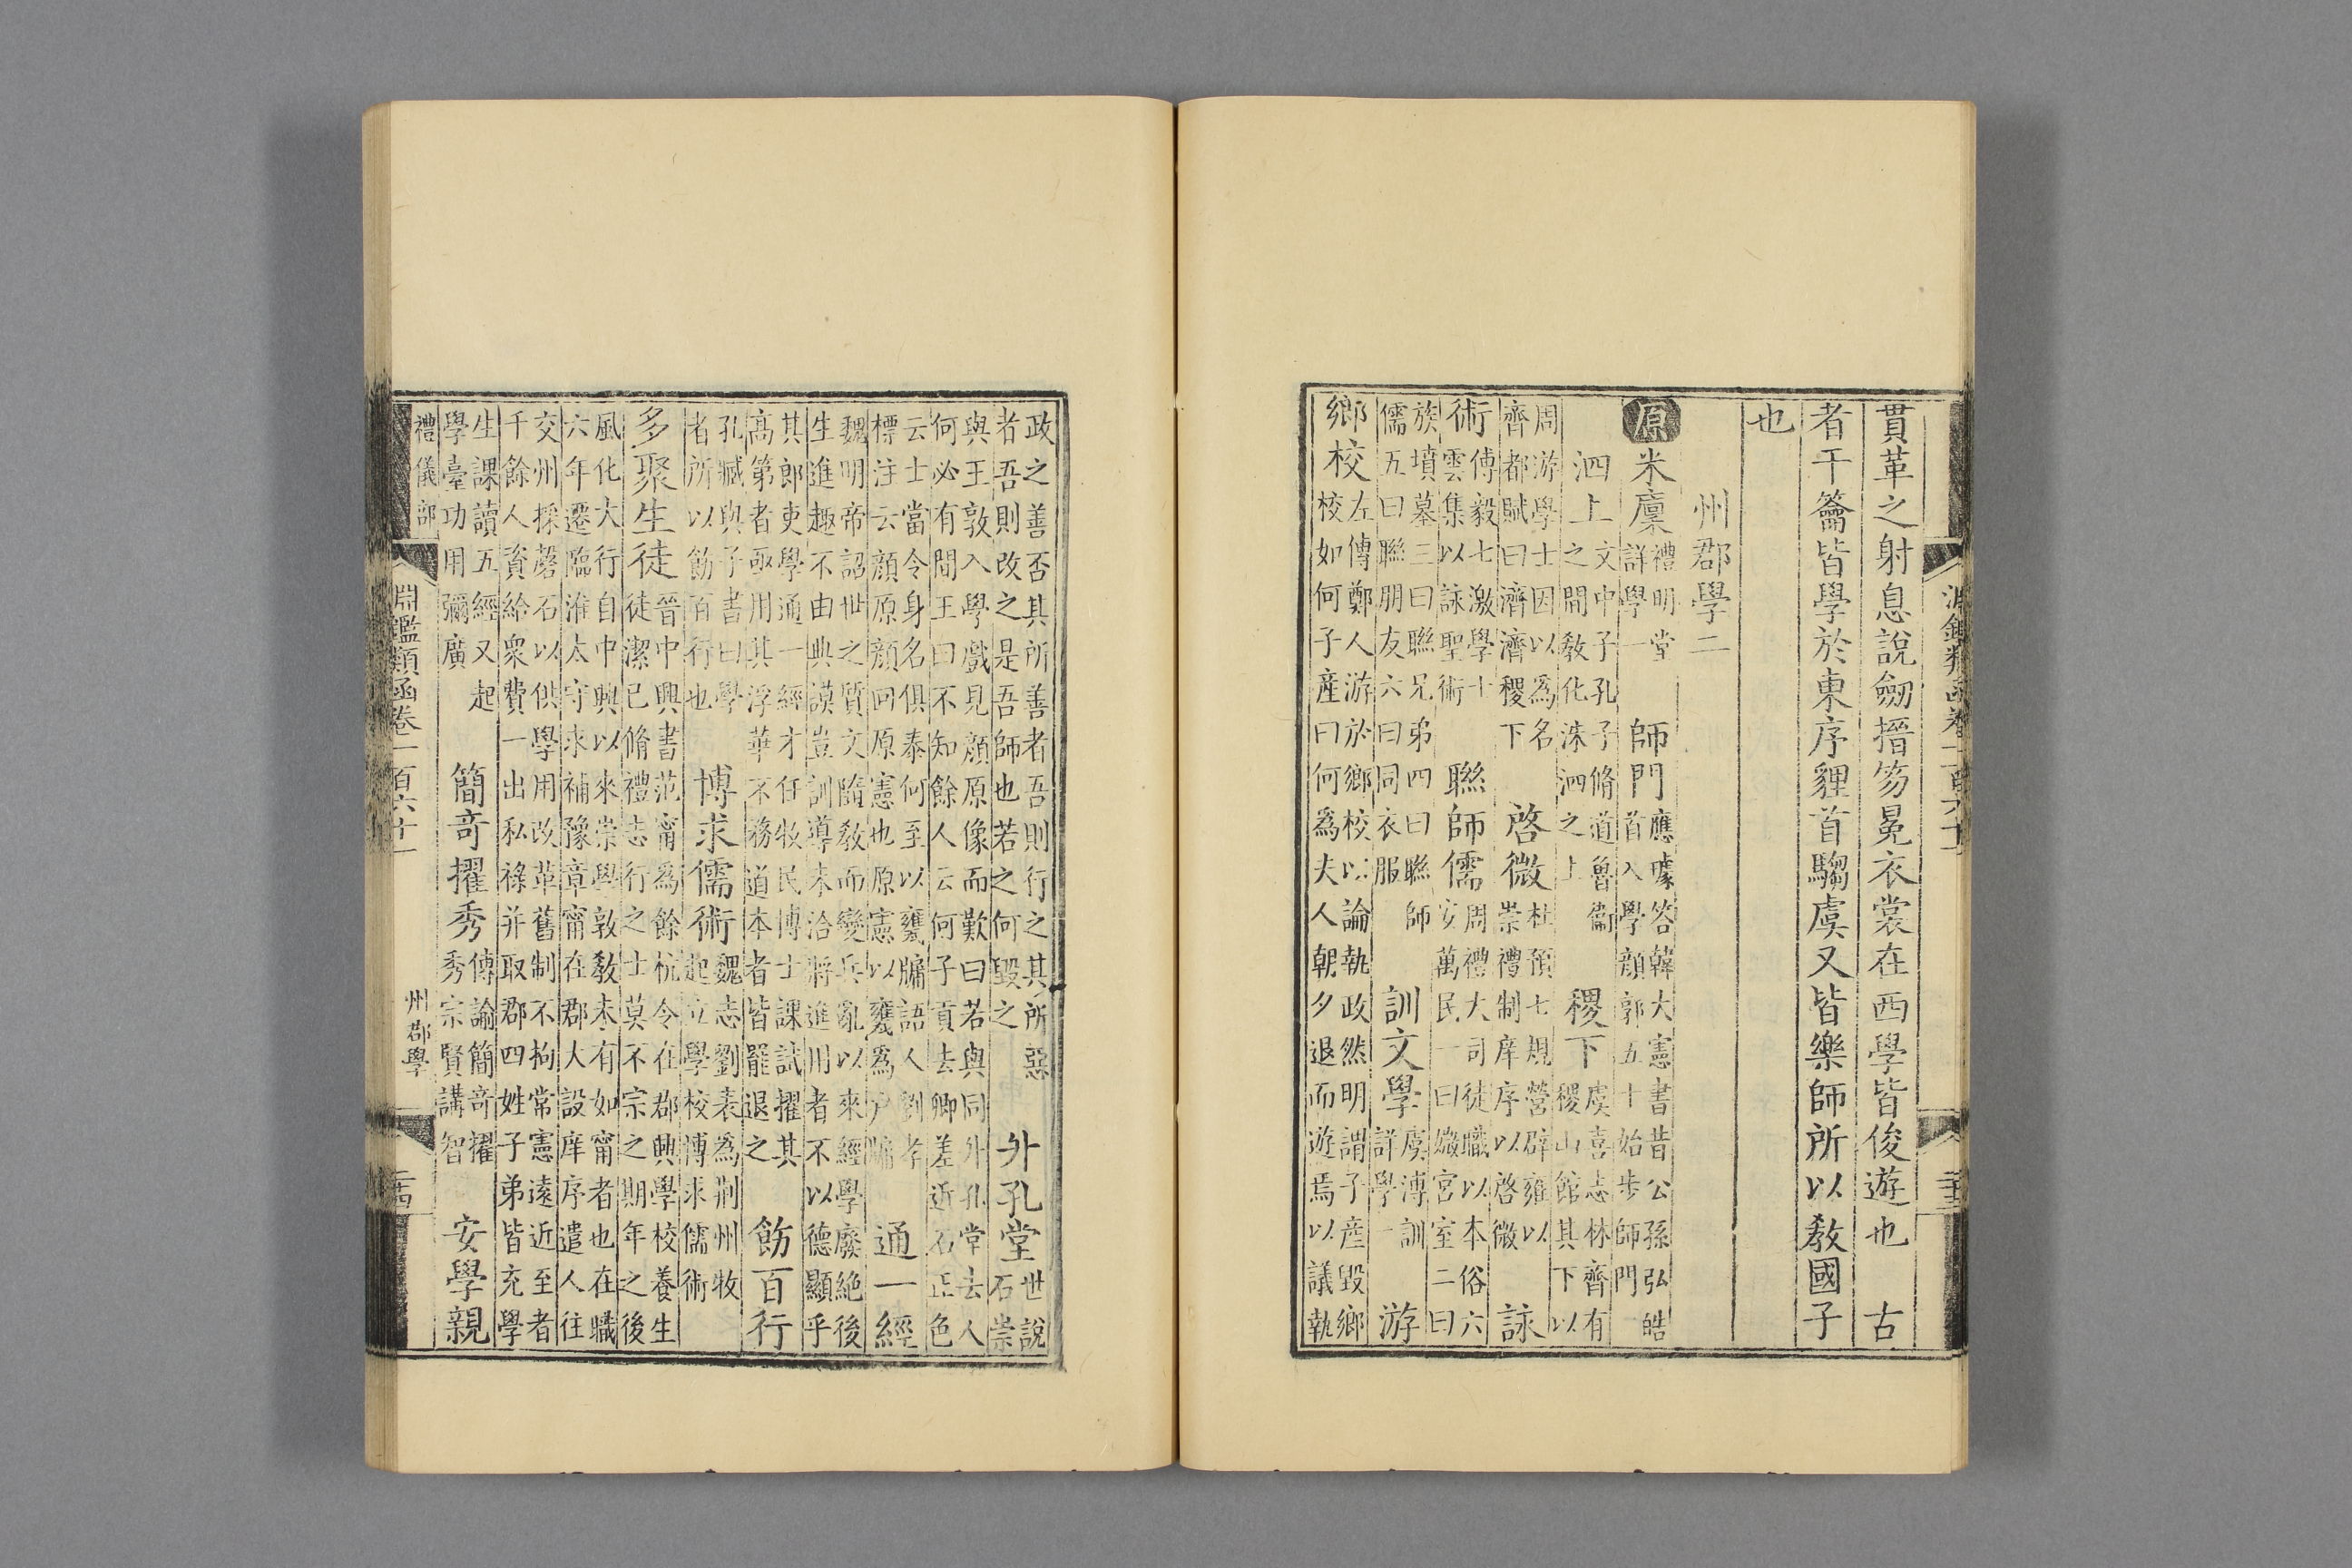 貫革之射息說劒搢笏冕衣裳在西學皆俊遊也　古
者干籥皆學於東序貍首騶虞又皆樂師所以敎國子
也
州郡學二
原米廩禮明堂詳學一　師門應璩答韓大憲書昔公孫弘皓首入學顔郭五十始步師門
泗上文中子孔子脩道魯衞之間敎化洙泗之上　稷下虞喜志林齊有稷山館其下以
周游學士因以爲名齊都賦曰濟濟稷下　啓微杜預七規營辟雍以崇禮制庠序以啓微　詠
術傅毅七激學士雲集以詠聖術　聯師儒周禮大司徒職以本俗六安萬民一曰媺宮室二曰
族墳墓三曰聯兄弟四曰聯師儒五曰聯朋友六曰同衣服　訓文學虞溥訓詳學一　游
鄉校左傳鄭人游於鄉校以論執政然明謂子產毀鄉校如何子產曰何爲夫人朝夕退而遊焉以議執
政之善否其所善者吾則行之其所惡者吾則改之是吾師也若之何毀之　升孔堂世說石崇
與王敦入學戲見顔原像而歎曰若與同升孔堂去人何必有間王曰不知餘人云何子貢去卿差近石正色
云士當令身名俱泰何至以甕牖語人劉孝標注云顔原顔回原憲也原憲以甕爲戶牖　通一經
魏明帝詔世之質文隨敎而變兵亂以來經學廢絕後生進趣不由典謨豈訓導未洽將進用者不以德顯乎
其郎吏學通一經才任牧民博士課試擢其高第者亟用其浮華不務道本者皆罷退之　飭百行
孔臧與子書曰學者所以飭百行也　博求儒術魏志劉表爲荆州牧起立學校博求儒術
多聚生徒晉中興書范甯爲餘杭令在郡興學校養生徒潔己脩禮志行之士莫不宗之期年之後
風化大行自中興以來崇學敦敎未有如甯者也在職六年遷臨淮太守求補豫章甯在郡大設庠序遣人往
交州採磬石以供學用改革舊制不拘常憲遠近至者千餘人資給衆費一出私祿并取郡四姓子弟皆充學
生課讀五經又起學臺功用彌廣　簡奇擢秀傅諭簡奇擢秀宗賢講智　安學親
禮儀部　淵鑑類函卷一百六十一　州郡學　二十四